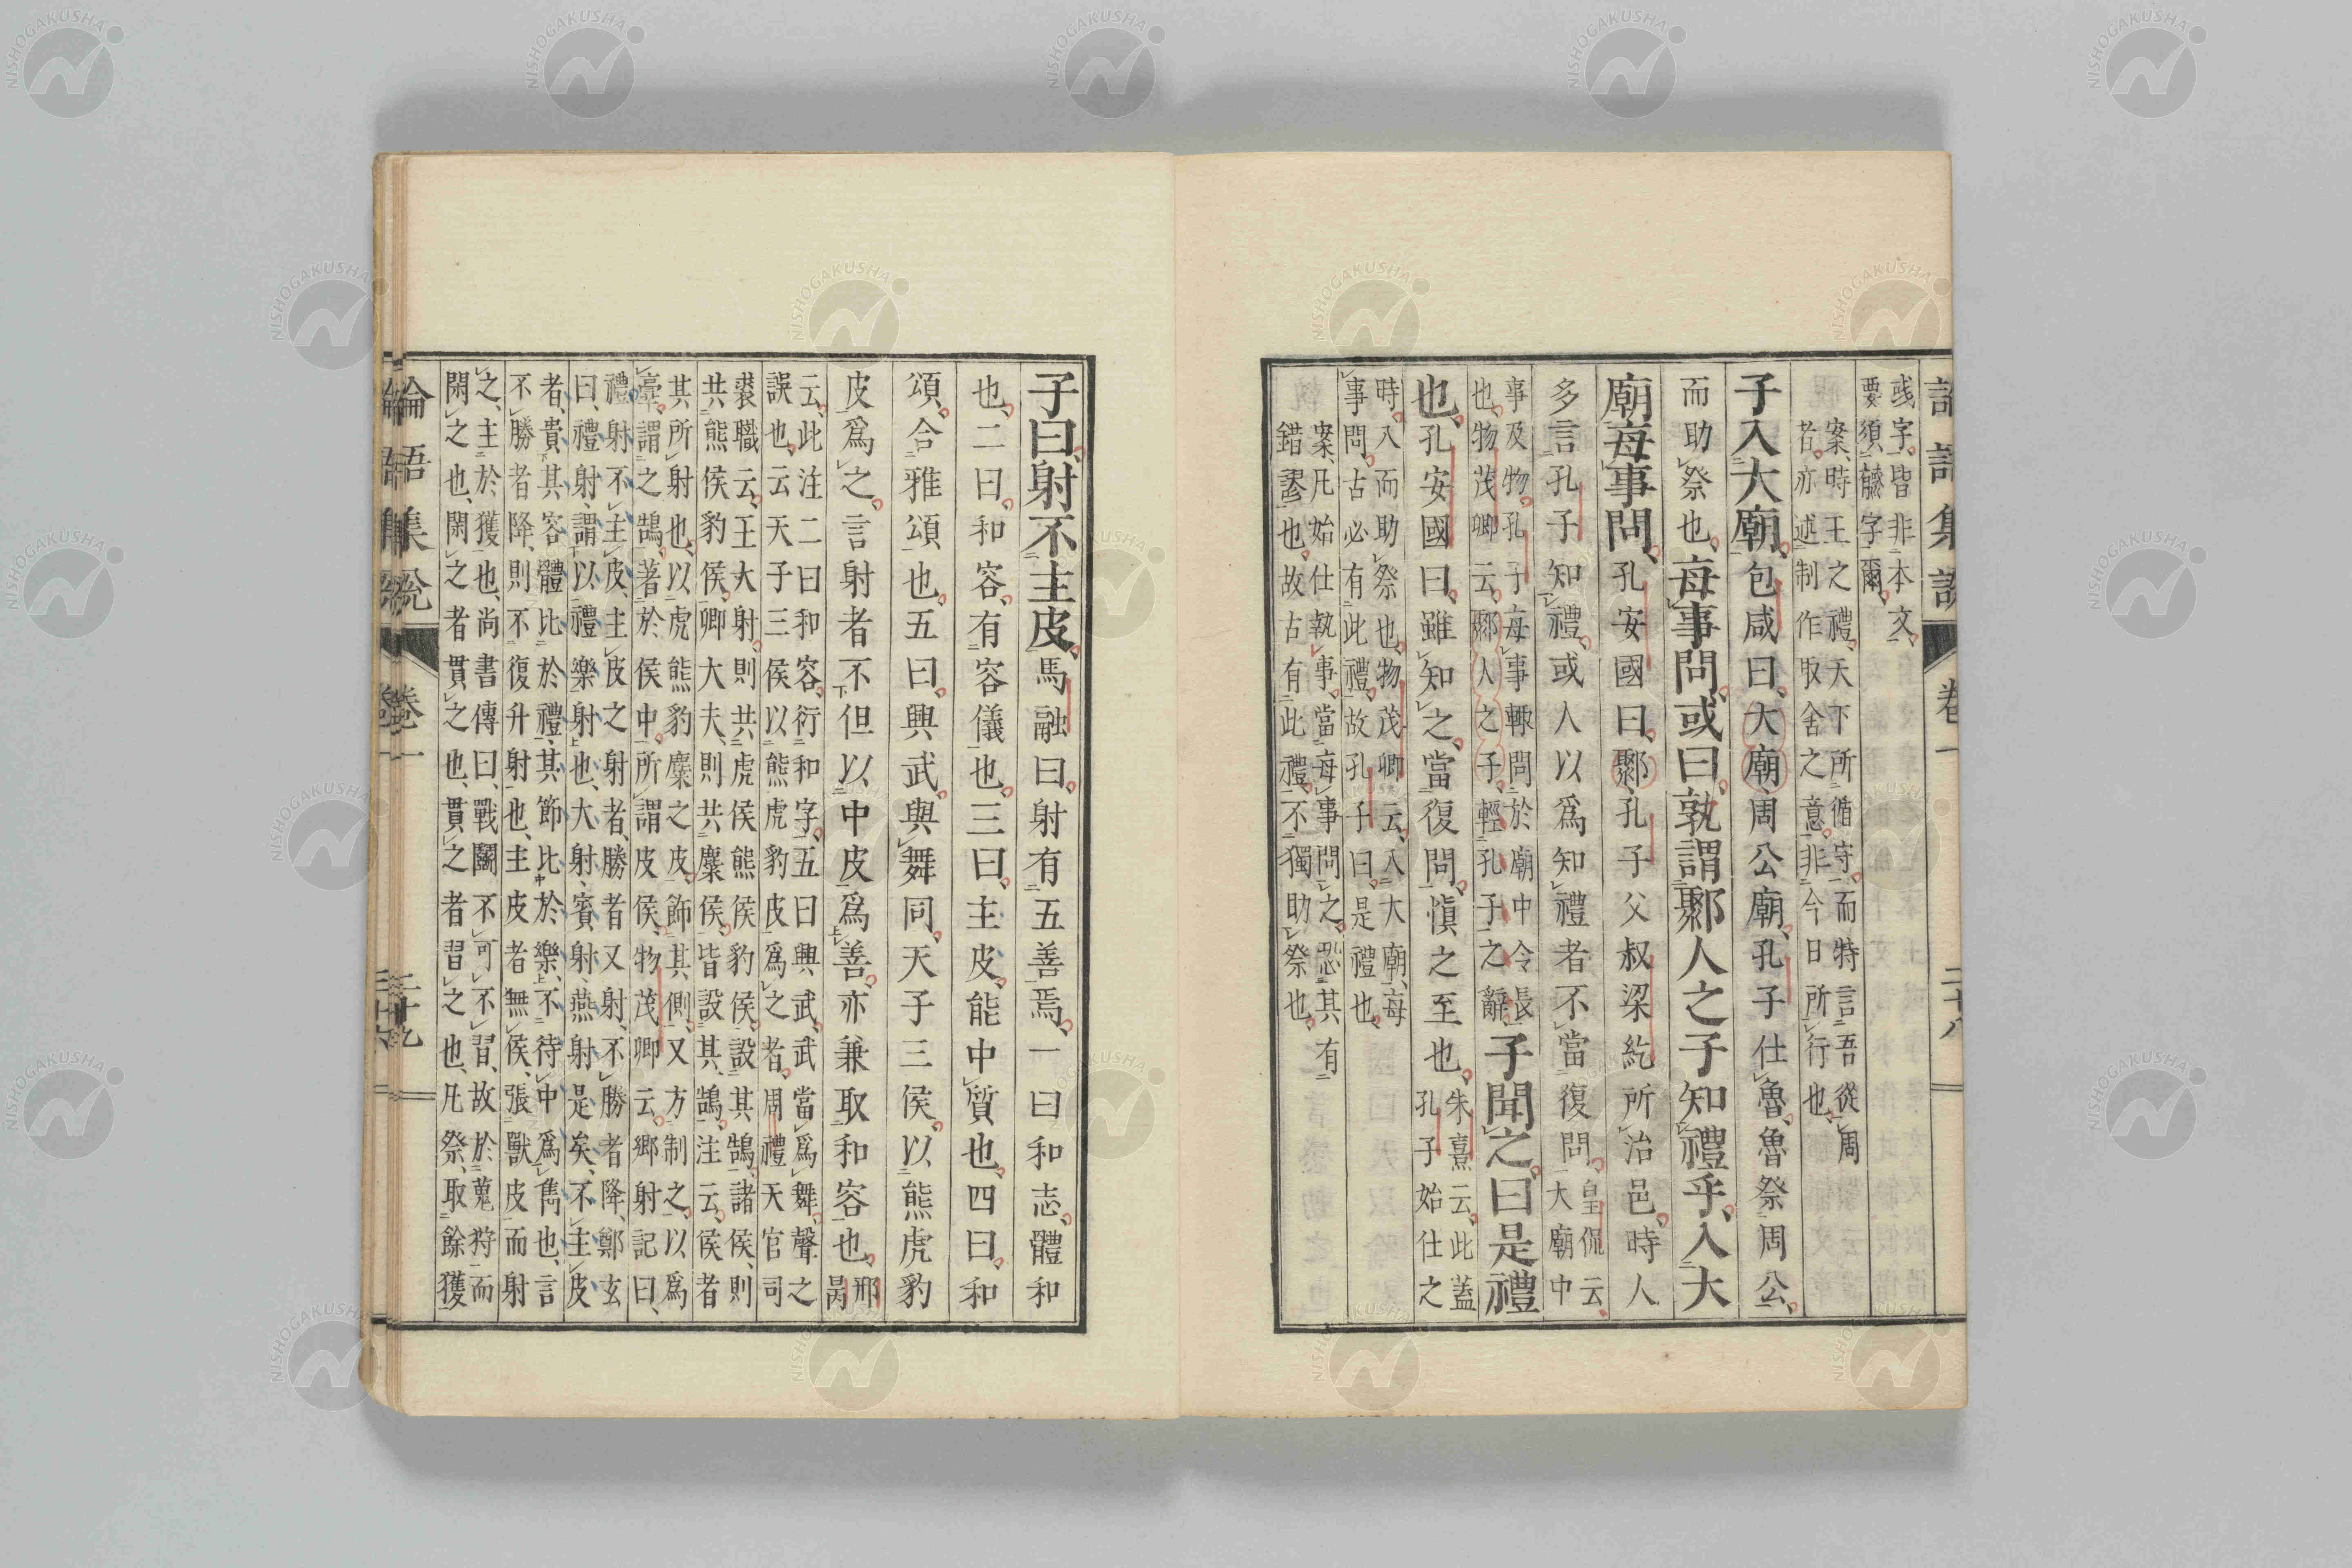 論語集說 卷一 二十八
彧字皆非本文、
要須字爾、
案、時王之禮、天下所循守、而特言吾從周
者、亦述制作取舍之意、非今日所行也、
子入大廟、包咸曰、大廟、周公廟、孔子仕魯、魯祭周公、
而助祭也、每事問、或曰、孰謂鄹人之子知禮乎、入大
廟每事問、孔安國曰、鄹、孔子父叔梁紇所治邑、時人
多言孔子知禮、或人以爲知禮者不當復問、
皇侃云、
大廟中
事及物、孔子每事輙問於廟中令長
也、物茂卿云、鄹人之子、輕孔子之辭、
子聞之、曰是禮
也、孔安國曰、雖知之、當復問、愼之至也、
朱熹云、此蓋
孔子始仕之
時、入而助祭也、物茂卿云、入大廟、每
事問、古必有此禮、故孔子曰、是禮也、
案、凡始仕執事、當每事問之、恐其有
錯謬也、故古有此禮、不獨助祭也、
子曰、射不主皮、馬融曰、射有五善焉、一曰和志、體和
也、二曰、和容、有容儀也、三曰、主皮、能中質也、四曰、和
頌、合雅頌也、五曰、興武、與舞同、天子三侯、以熊虎豹
皮爲之、言射者不但以中皮爲善、亦兼取和容也、
邢
昺
云、此注二曰和容、衍和字、五曰興武、武當爲舞、聲之
誤也、云天子三侯以熊虎豹皮爲之者、周禮天官司
裘職云、王大射、則共虎侯熊侯豹侯、設其鵠、諸侯、則
共熊侯豹侯、卿大夫、則共麋侯、皆設其鵠、注云、侯者
其所射也、以虎熊豹麋之皮、飾其側、又方制之、以爲
臺、謂之鵠、著於侯中、所謂皮侯、物茂卿云、鄉射記曰、
禮射不主皮、主皮之射者、勝者又射、不勝者降、鄭玄
曰、禮射、謂以禮樂射也、大射、賓射、燕射是矣、不主皮
者、貴其容體比於禮、其節比於樂、不待中爲雋也、言
不勝者降、則不復升射也、主皮者、無侯、張獸皮而射
之、主於獲也、尚書傳曰、戰鬭不可不習、故於蒐狩而
閑之也、閑之者貫之也、貫之者習之也、凡祭、取餘獲
論語集說 卷一 二十九